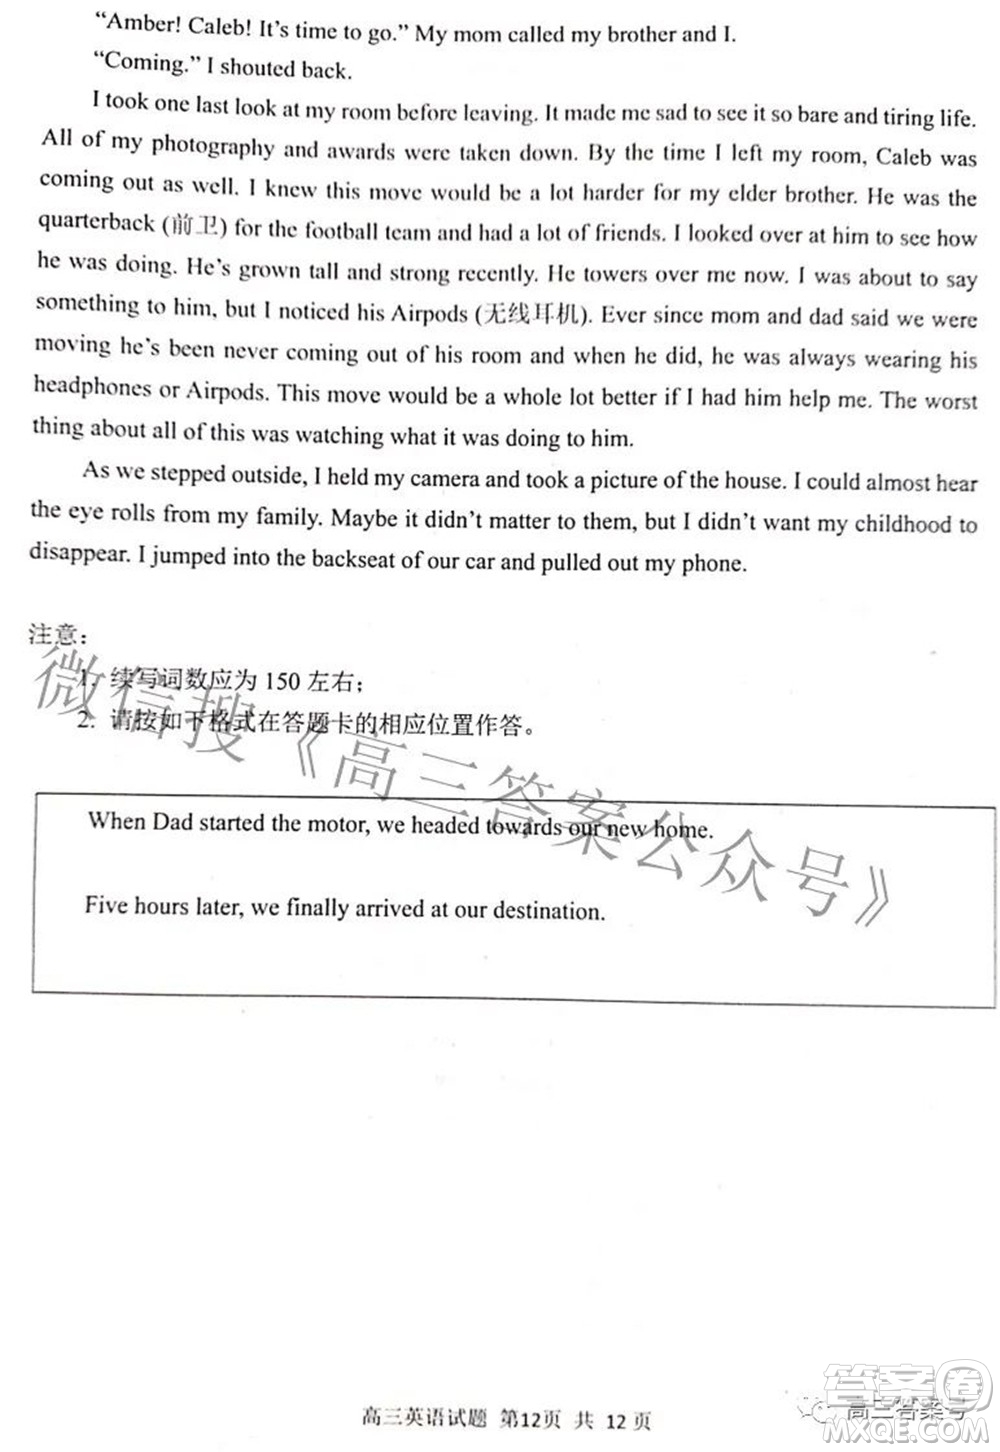 “Amber! Caleb! It’s time to go.” My mom called my brother and I.
“Coming.” I shouted back.
I took one last look at my room before leaving. It made me sad to see it so bare and tiring life.
All of my photography and awards were taken down. By the time I left my room, Caleb was
coming out as well. I knew this move would be a lot harder for my elder brother. He was the
quarterback (前卫) for the football team and had a lot of friends. I looked over at him to see how
he was doing. He’s grown tall and strong recently. He towers over me now. I was about to say
something to him, but I noticed his Airpods (无线耳机). Ever since mom and dad said we were
moving he’s been never coming out of his room and when he did, he was always wearing his
headphones or Airpods. This move would be a whole lot better if I had him help me. The worst
thing about all of this was watching what it was doing to him.
As we stepped outside, I held my camera and took a picture of the house. I could almost hear
the eye rolls from my family. Maybe it didn’t matter to them, but I didn’t want my childhood to
disappear. I jumped into the backseat of our car and pulled out my phone.
注意：
1. 续写词数应为 150 左右；
2. 请按如下格式在答题卡的相应位置作答。
微信搜《高三答案公众号》
When Dad started the motor, we headed towards our new home.
Five hours later, we finally arrived at our destination.
高三英语试题 第12页 共 12 页
高三答案号
答案圈
MXQE.COM